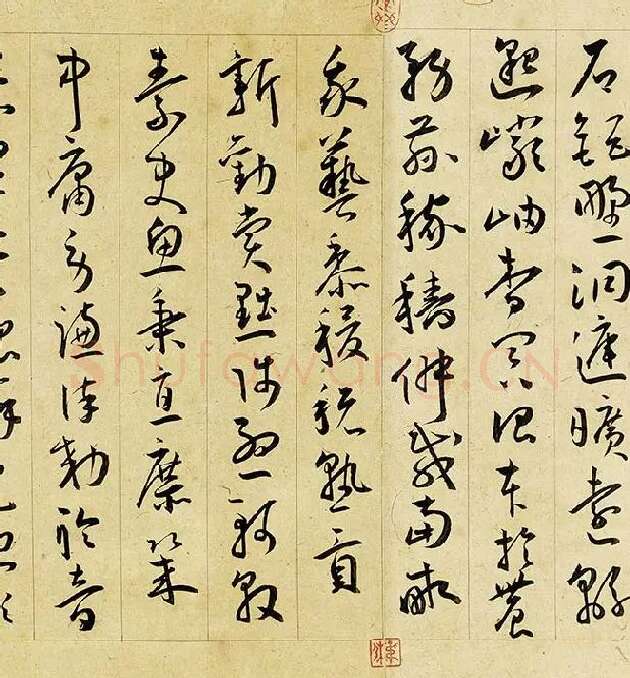 石鉅野洞庭曠遠綿
邈巖岫杳冥治本於農
務茲稼穡俶載南畝
我藝黍稷稅熟貢
新勸賞黜陟孟軻敦
素史魚秉直庶幾
中庸勞謙謹敕聆音
Shufawang.CN